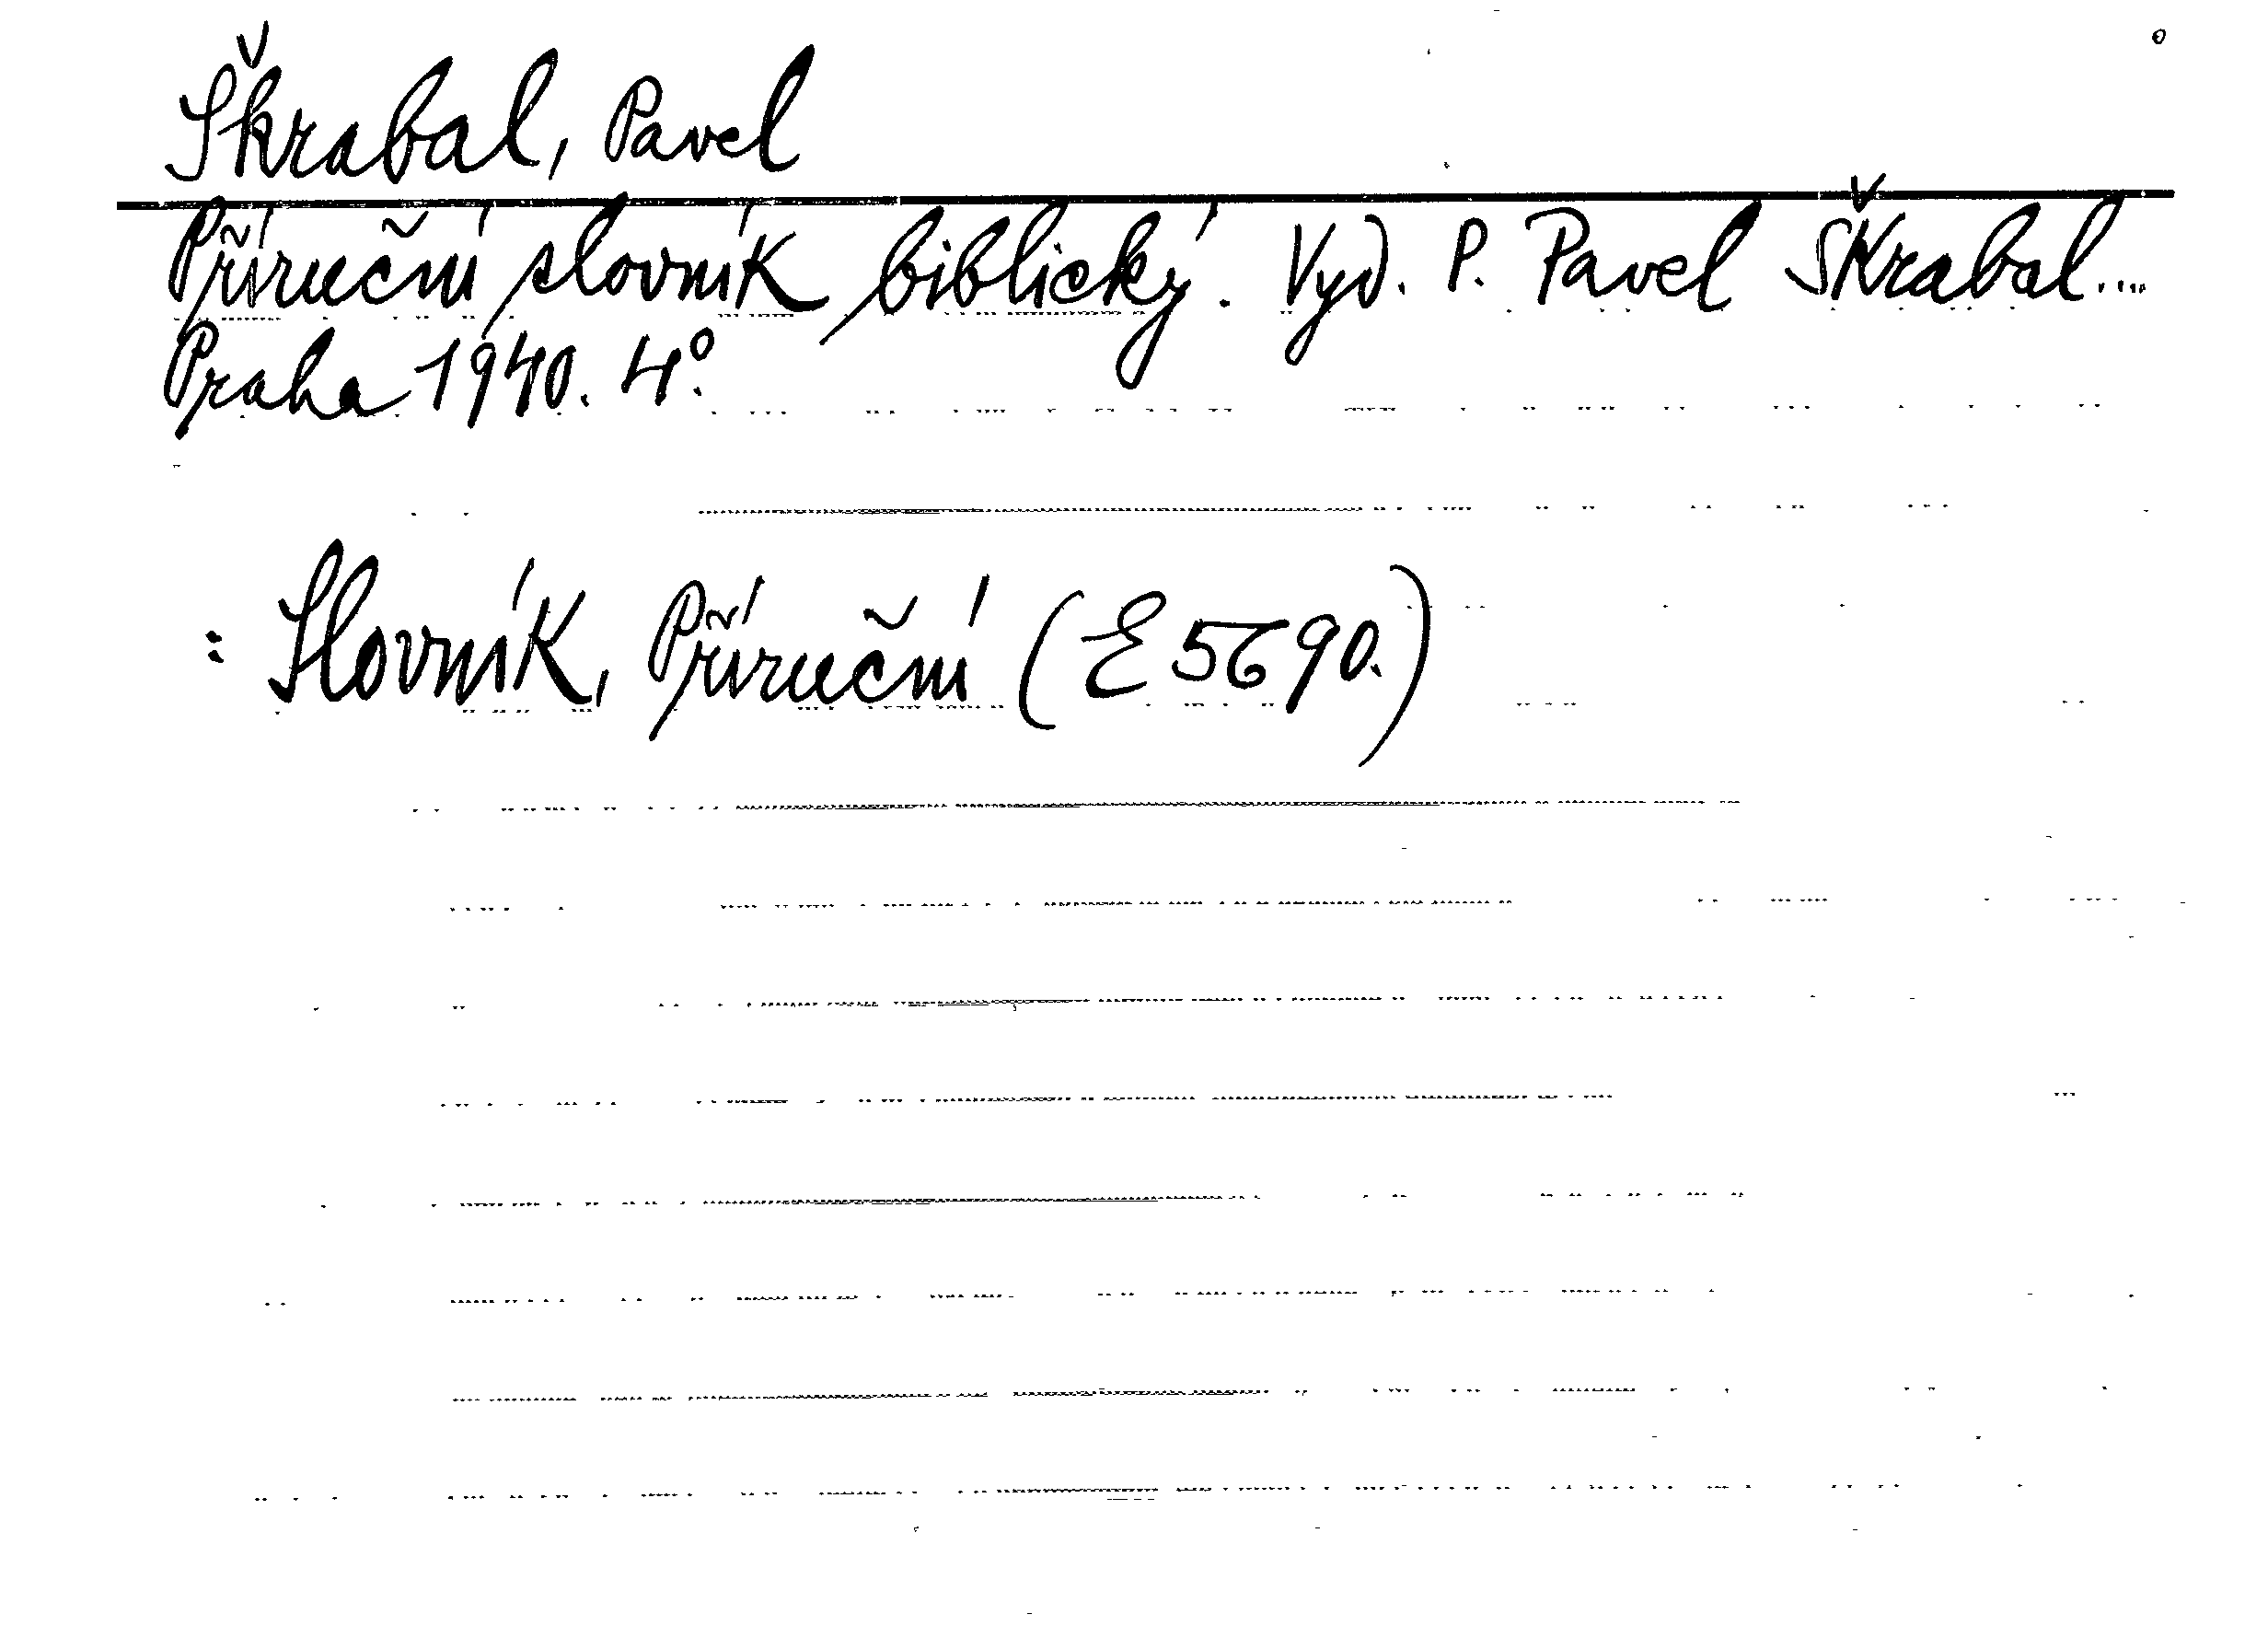 Škrabal, Pavel
Příruční slovník biblický. Vyd. P. Pavel Škrabal...
Praha 1940. 4°.
: Slovník, Příruční (E 5690.)